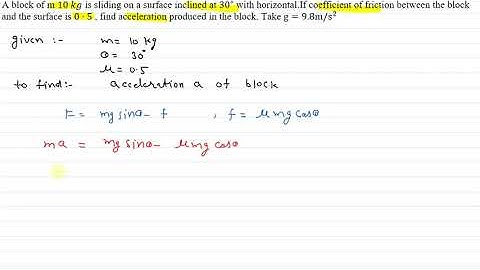 A block of m 10 kg is sliding on a surface inclined at 30° with horizontal.If coefficient of friction between the block
and the surface is 0·5 , find acceleration produced in the block. Take g = 9.8m/s²
given :- m= 10 kg
θ = 30°
μ = 0.5
to find:- acceleration a of block
F = mg sinθ - f , f = μ mg cosθ
ma = mg sinθ - μ mg cosθ